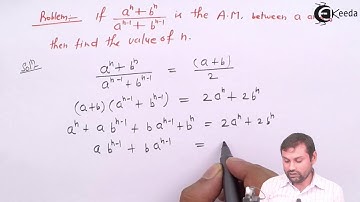 Ekeeda
Problem:- If aⁿ+bⁿ/aⁿ⁻¹+bⁿ⁻¹ is the A.M. between a a
then find the value of n.
Solⁿ
aⁿ+bⁿ/aⁿ⁻¹+bⁿ⁻¹ = (a+b)/2
(a+b)(aⁿ⁻¹+bⁿ⁻¹) = 2aⁿ+2bⁿ
aⁿ+abⁿ⁻¹+baⁿ⁻¹+bⁿ = 2aⁿ+2bⁿ
abⁿ⁻¹+baⁿ⁻¹ =